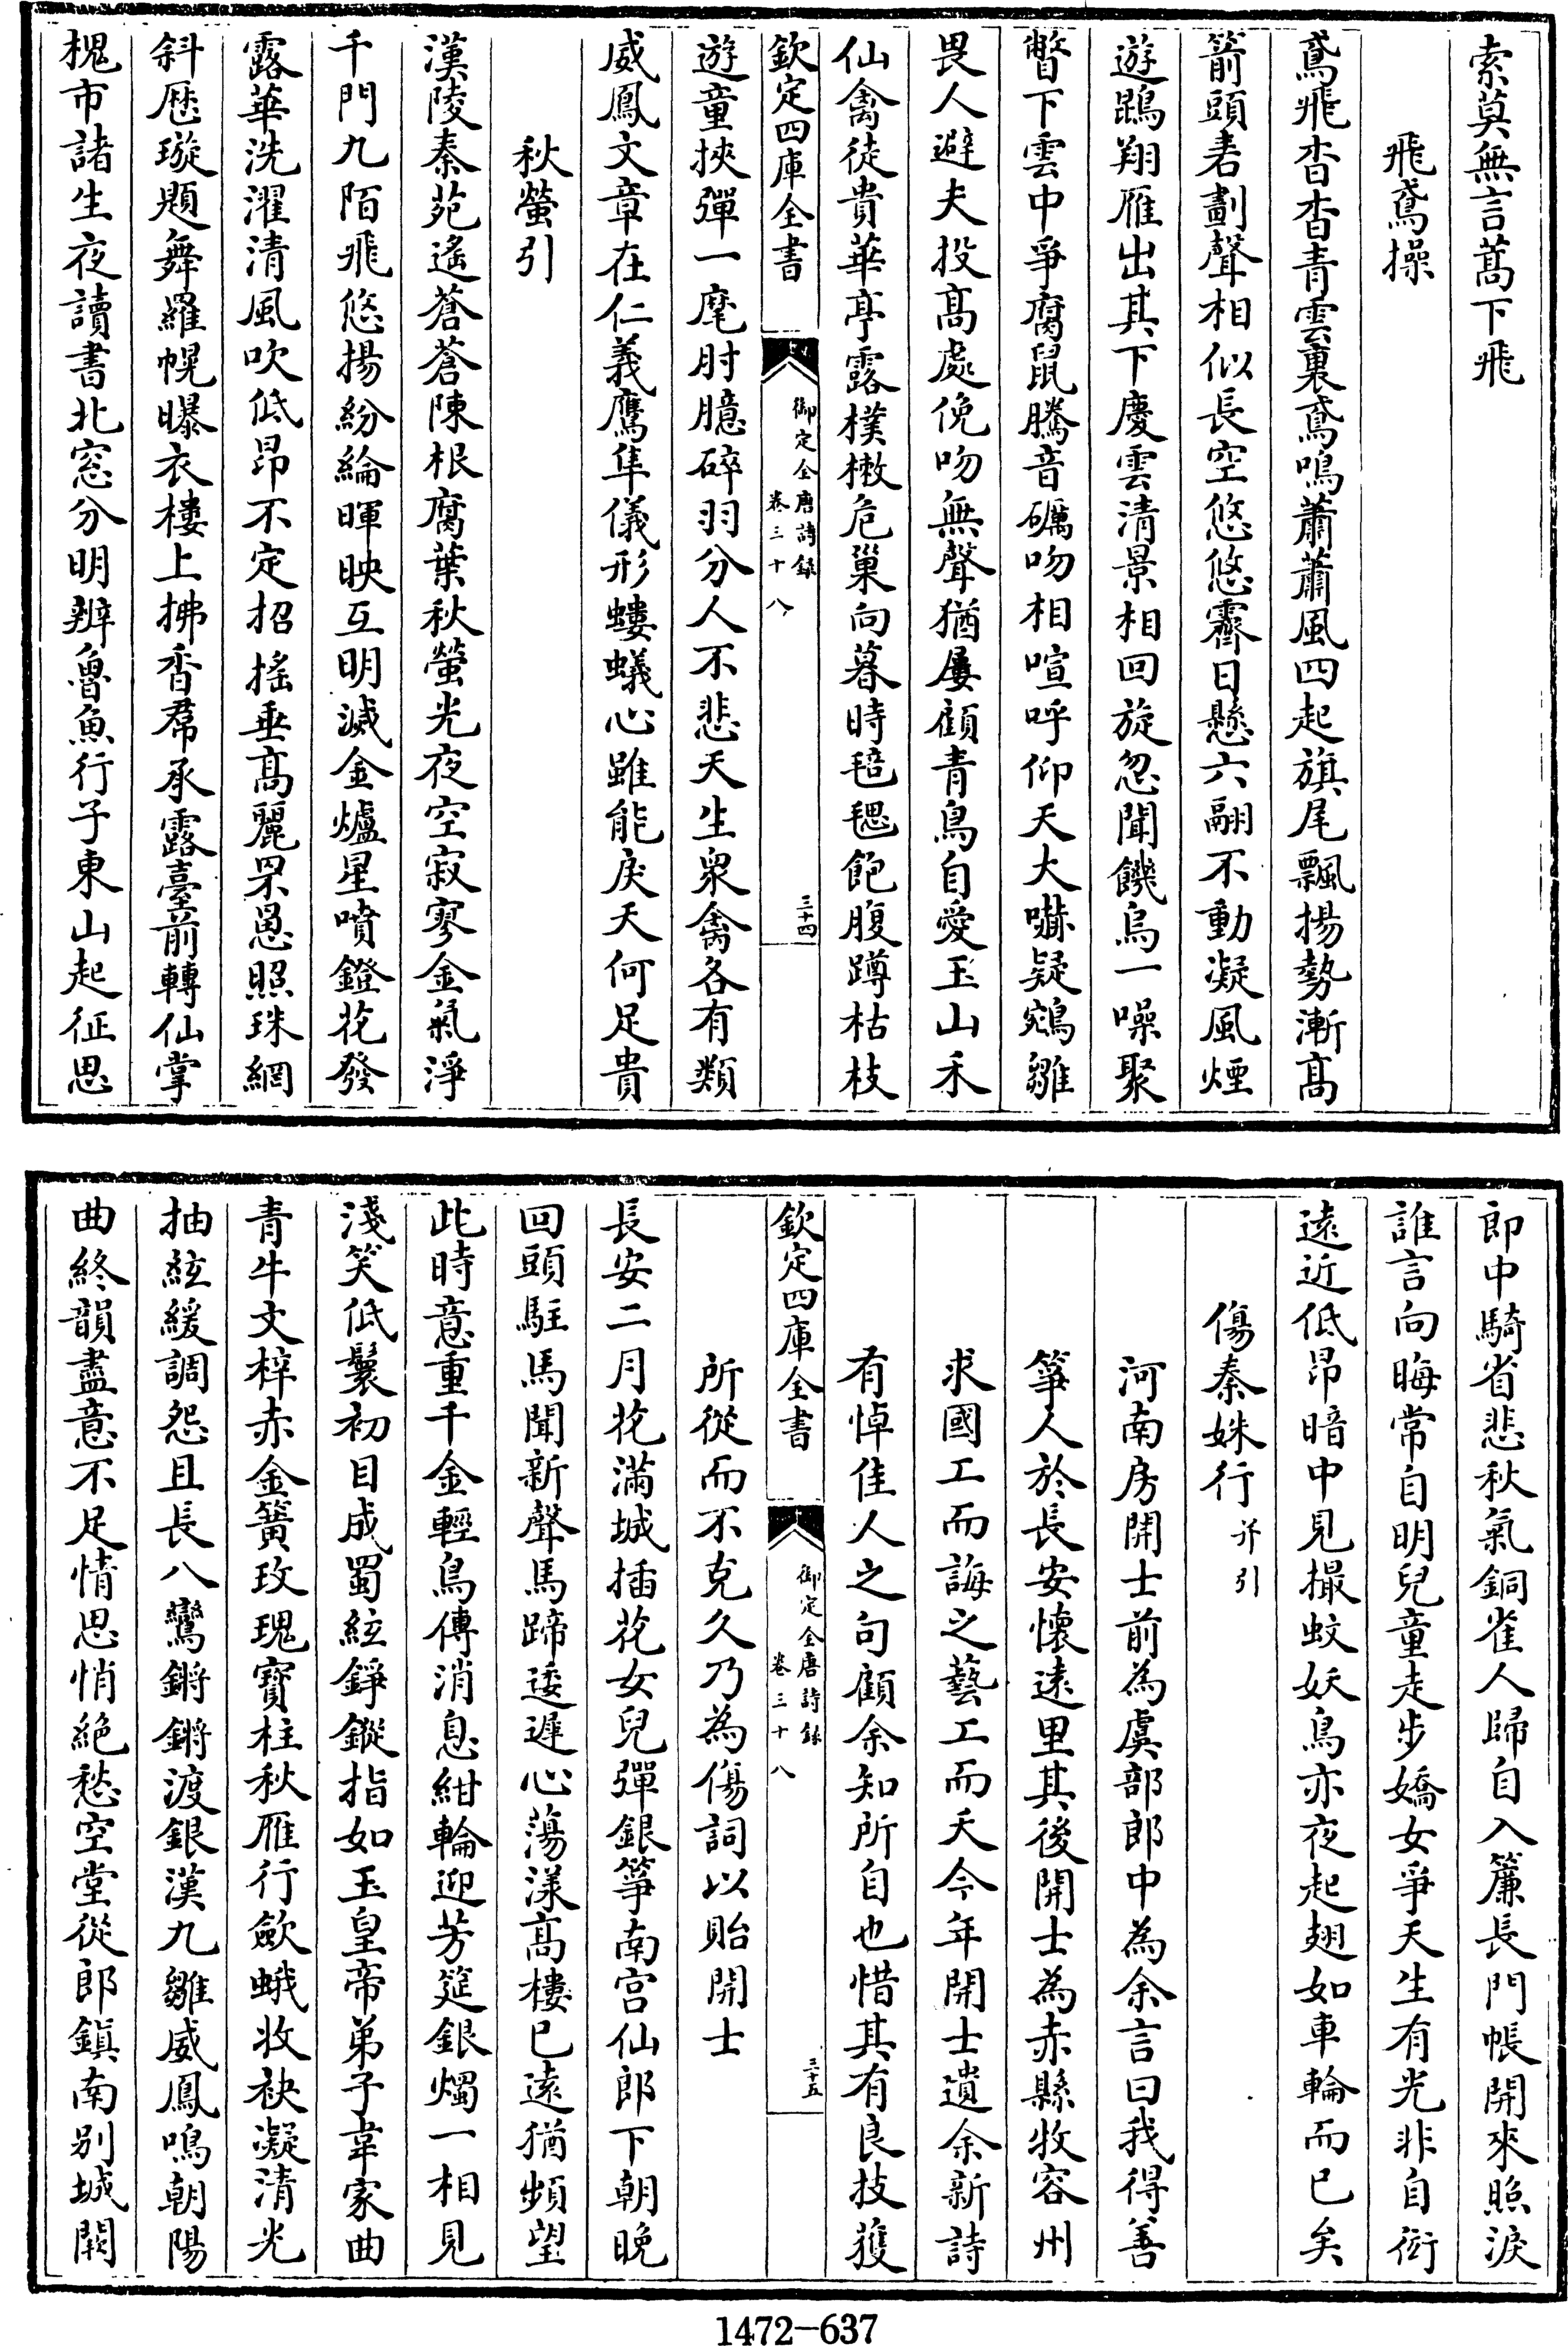 索莫無言蒿下飛
飛鳶操
鳶飛杳杳青雲裏鳶鳴蕭蕭風四起旗尾飄揚勢漸髙
箭頭砉劃聲相似長空悠悠霽日懸六翮不動凝風煙
遊鵾翔雁出其下慶雲清景相回旋忽聞饑烏一噪聚
瞥下雲中爭腐鼠騰音礪吻相喧呼仰天大嚇疑鵷雛
畏人避犬投髙處俛吻無聲猶屢顧青鳥自愛玉山禾
仙禽徒貴華亭露樸樕危巢向暮時毰毸飽腹蹲枯枝
欽定四庫全書
御定全唐詩録
卷三十八
三十四
遊童挾彈一麾肘臆碎羽分人不悲天生衆禽各有類
威鳳文章在仁義鷹隼儀形螻蟻心雖能戾天何足貴
秋螢引
漢陵秦苑遙蒼蒼陳根腐葉秋螢光夜空寂寥金氣淨
千門九陌飛悠揚紛綸暉映互明滅金爐星噴鐙花發
露華洗濯清風吹低昂不定招搖垂髙麗罘罳照珠網
斜厯璇題舞羅幌曝衣樓上拂香帬承露臺前轉仙掌
槐市諸生夜讀書北窓分明辨魯魚行子東山起征思
郎中騎省悲秋氣銅雀人歸自入簾長門帳開來照淚
誰言向晦常自明兒童走步嬌女爭天生有光非自衒
逺近低昂暗中見撮蚊妖鳥亦夜起翅如車輪而已矣
傷秦姝行并引
河南房開士前為虞部郎中為余言曰我得善
箏人於長安懷逺里其後開士為赤縣牧容州
求國工而誨之藝工而夭今年開士遺余新詩
有悼佳人之句顧余知所自也惜其有良技獲
欽定四庫全書
御定全唐詩録
卷三十八
三十五
所從而不克久乃為傷詞以貽開士
長安二月花滿城插花女兒彈銀箏南宮仙郎下朝晚
回頭駐馬聞新聲馬蹄逶遲心蕩漾髙樓已逺猶頻望
此時意重千金輕鳥傳消息紺輪迎芳筵銀燭一相見
淺笑低鬟初目成蜀絃錚鏦指如玉皇帝弟子韋家曲
青牛文梓赤金簧玫瑰寶柱秋雁行歛蛾收袂凝清光
抽絃緩調怨且長八鸞鏘鏘渡銀漢九雛威鳳鳴朝陽
曲終韻盡意不足情思悄絶愁空堂從郎鎮南别城闕
1472-637